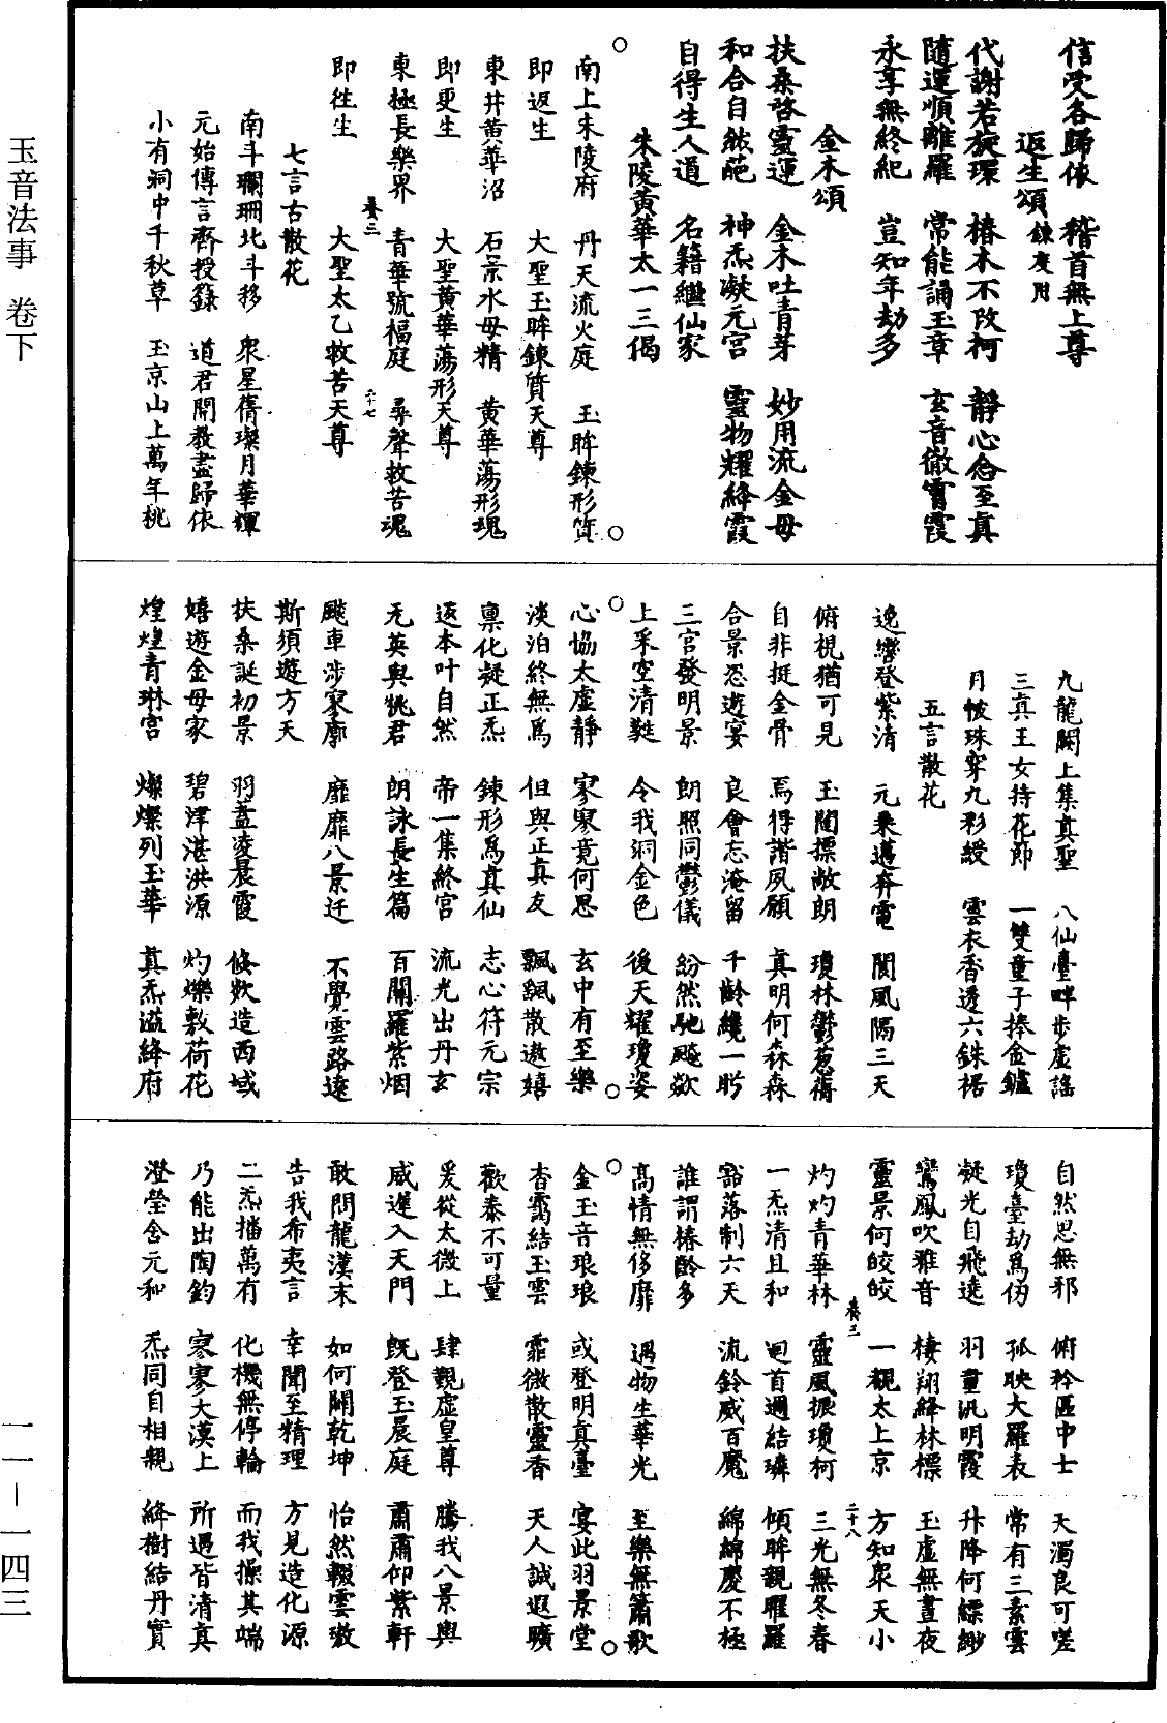 信受各歸依　稽首無上尊
返生頌 鍊度用
代謝若旋環　椿木不改柯　靜心念至真
隨運順離羅　常能誦玉章　玄音徹霄霞
永享無終紀　豈知年劫多
金木頌
扶桑啓靈運　金木吐青芽　妙用流金母
和合自然葩　神炁凝元宮　靈物耀絳霞
自得生人道　名籍繼仙家
朱陵黃華太一三偈
南上朱陵府　丹天流火庭　玉眸鍊形質
即返生　大聖玉眸鍊質天尊
東井黃華沼　石景水母精　黃華蕩形塊
即更生　大聖黃華蕩形天尊
東極長樂界　青華號福庭　尋聲救苦魂
卷三　二十七
即徃生　大聖太乙救苦天尊
七言古散花
南斗瓓珊北斗移　衆星雋璨月華輝
元始傳言齊授籙　道君開教盡歸依
小有洞中千秋草　玉京山上萬年桃
九龍闕上集真聖　八仙臺畔步虛謠
三真王女持花節　一雙童子捧金鑪
月帔珠穿九彩綬　雲衣香透六銖裙
五言散花
逸轡登紫清　元乗邁奔電　閬風隔三天
俯視猶可見　玉闥摽敞朗　瓊林鬱葱蒨
自非挺金骨　焉得諧夙願　真明何森森
合景恣遊宴　良會忘淹留　千齡纔一眄
三官發明景　朗照同鬱儀　紛然馳飈歘
上采空清㲲　令我洞金色　後天耀瓊姿
心協太虛靜　寥寥竟何思　玄中有至樂
淡泊終無爲　但與正真友　飄飄散遨嬉
禀化凝正炁　鍊形爲真仙　志心符元宗
返本叶自然　帝一集絳宮　流光出丹玄
无英與桃君　朗詠長生篇　百關羅紫烟
飈車涉寥廓　靡靡八景迁　不覺雲路遠
斯須遊方天
扶桑誕初景　羽蓋凌晨霞　倏欻造西域
嬉遊金母家　碧津湛洪源　灼爍敷荷花
煌煌青琳宮　燦燦列玉華　真炁溢絳府
自然思無邪　俯矜區中士　夭濁良可嗟
瓊臺劫爲仞　孤映大羅表　常有三素雲
凝光自飛遶　羽童汎明霞　升降何縹緲
鸞鳳吹雅音　棲翔絳林標　玉虛無晝夜
靈景何皎皎　一覩太上京　方知衆天小
卷三　二十八
灼灼青華林　靈風振瓊柯　三光無冬春
一炁清且和　迴首邇結璘　傾眸親曜羅
豁落制六天　流鈴威百魔　綿綿慶不極
誰謂椿齡多
高情無侈靡　遇物生華光　至樂無簫歌
金玉音琅琅　或登明真臺　宴此羽景堂
杳靄結玉雲　霏微散靈香　天人誠遐曠
歡泰不可量
爰從太微上　肆覲虛皇尊　騰我八景輿
威遲入天門　既登玉晨庭　肅肅仰紫軒
敢問龍漢末　如何闢乾坤　怡然輟雲璈
告我希夷言　幸聞至精理　方見造化源
二炁播萬有　化機無停輪　而我操其端
乃能出陶鈞　寥寥大漠上　所遇皆清真
澄瑩含元和　炁同自相親　絳樹結丹實
玉音法事　卷下
一一－一四三